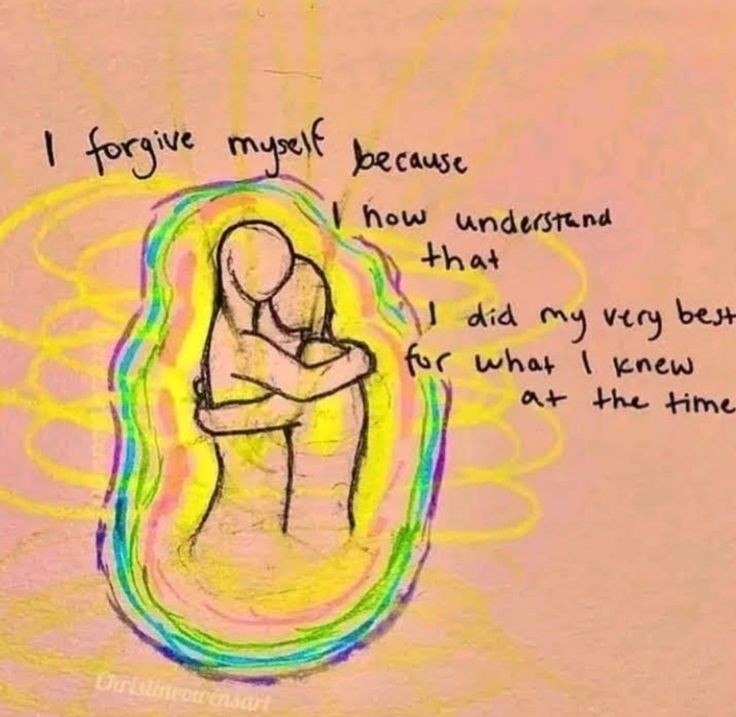 I forgive myself because
I now understand
that
I did my very best
for what I knew
at the time
Christineowensart